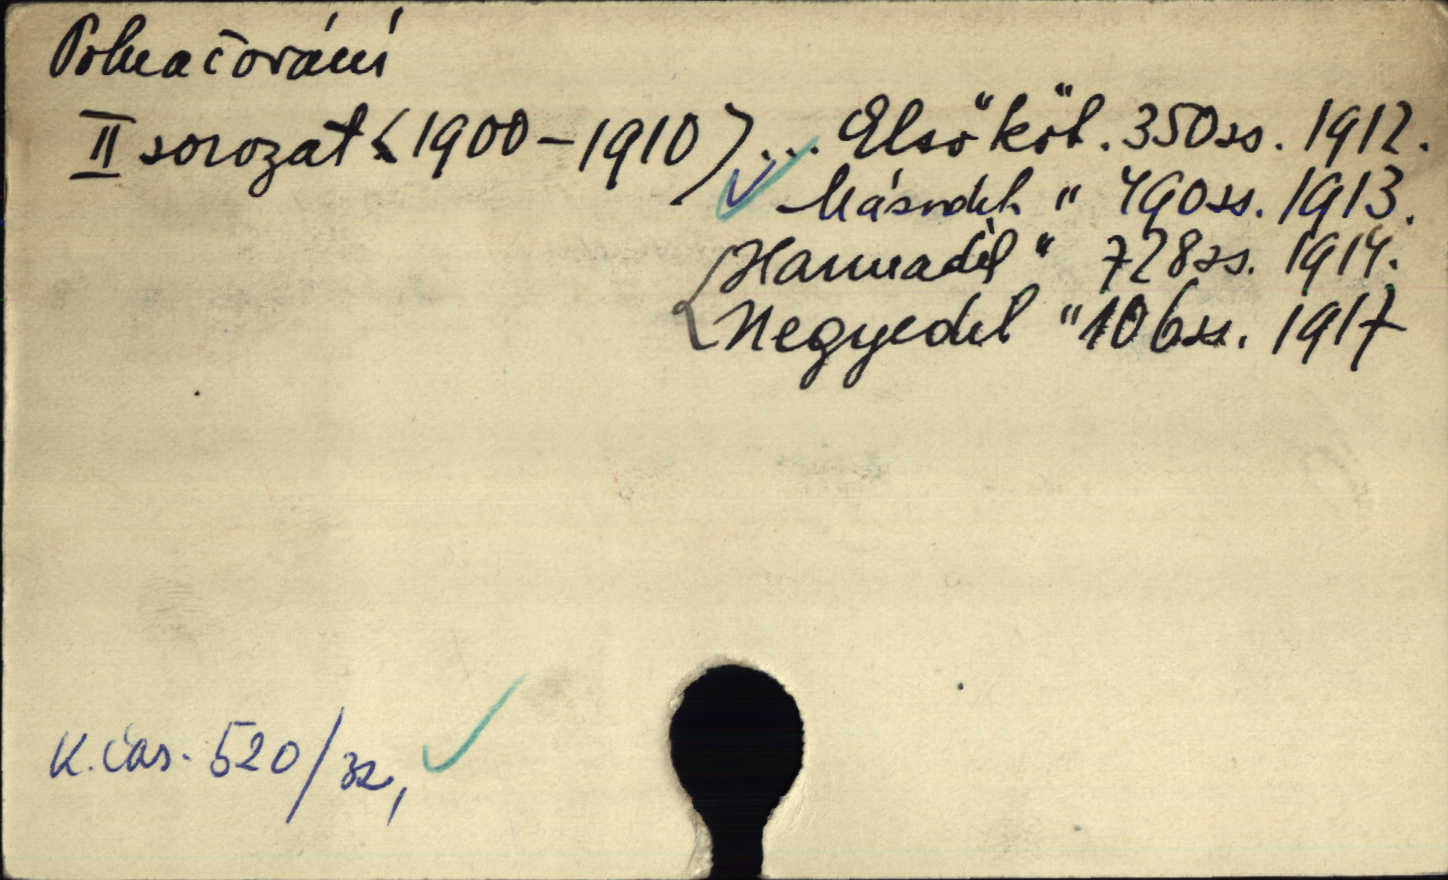 Pokračování
II sorozat <1900-1910> ... Első köt. 350 ss. 1912.
Második " 490 ss. 1913.
Harmadik " 728 ss. 1914.
Negyedik " 106 ss. 1917
K. čas. 520/32,